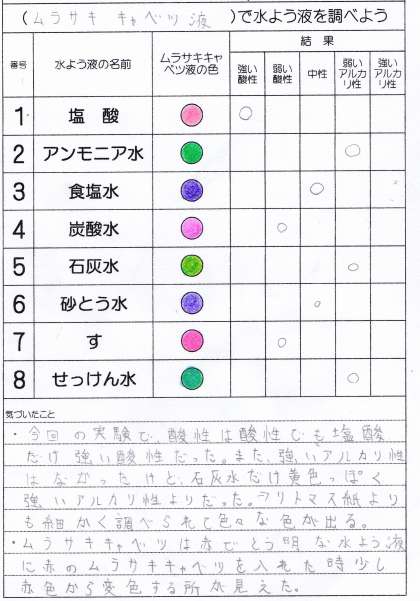 (ムラサキ キャベツ液)で水よう液を調べよう
番号 水よう液の名前 ムラサキキャベツ液の色 結果
強い酸性 弱い酸性 中性 弱いアルカリ性 強いアルカリ性
1 塩酸 ○
2 アンモニア水 ○
3 食塩水 ○
4 炭酸水 ○
5 石灰水 ○
6 砂とう水 ○
7 す ○
8 せっけん水 ○
気づいたこと
・今回の実験で、酸性は酸性でも塩酸
だけ強い酸性だった。また、強いアルカリ性
はなかったけど、石灰水だけ黄色っぽく
強いアルカリ性よりだった。リトマス紙より
も細かく調べられて色々な色が出る。
・ムラサキキャベツは赤でとう明な水よう液
に赤のムラサキキャベツを入れた時少し
赤色から変色する所が見えた。